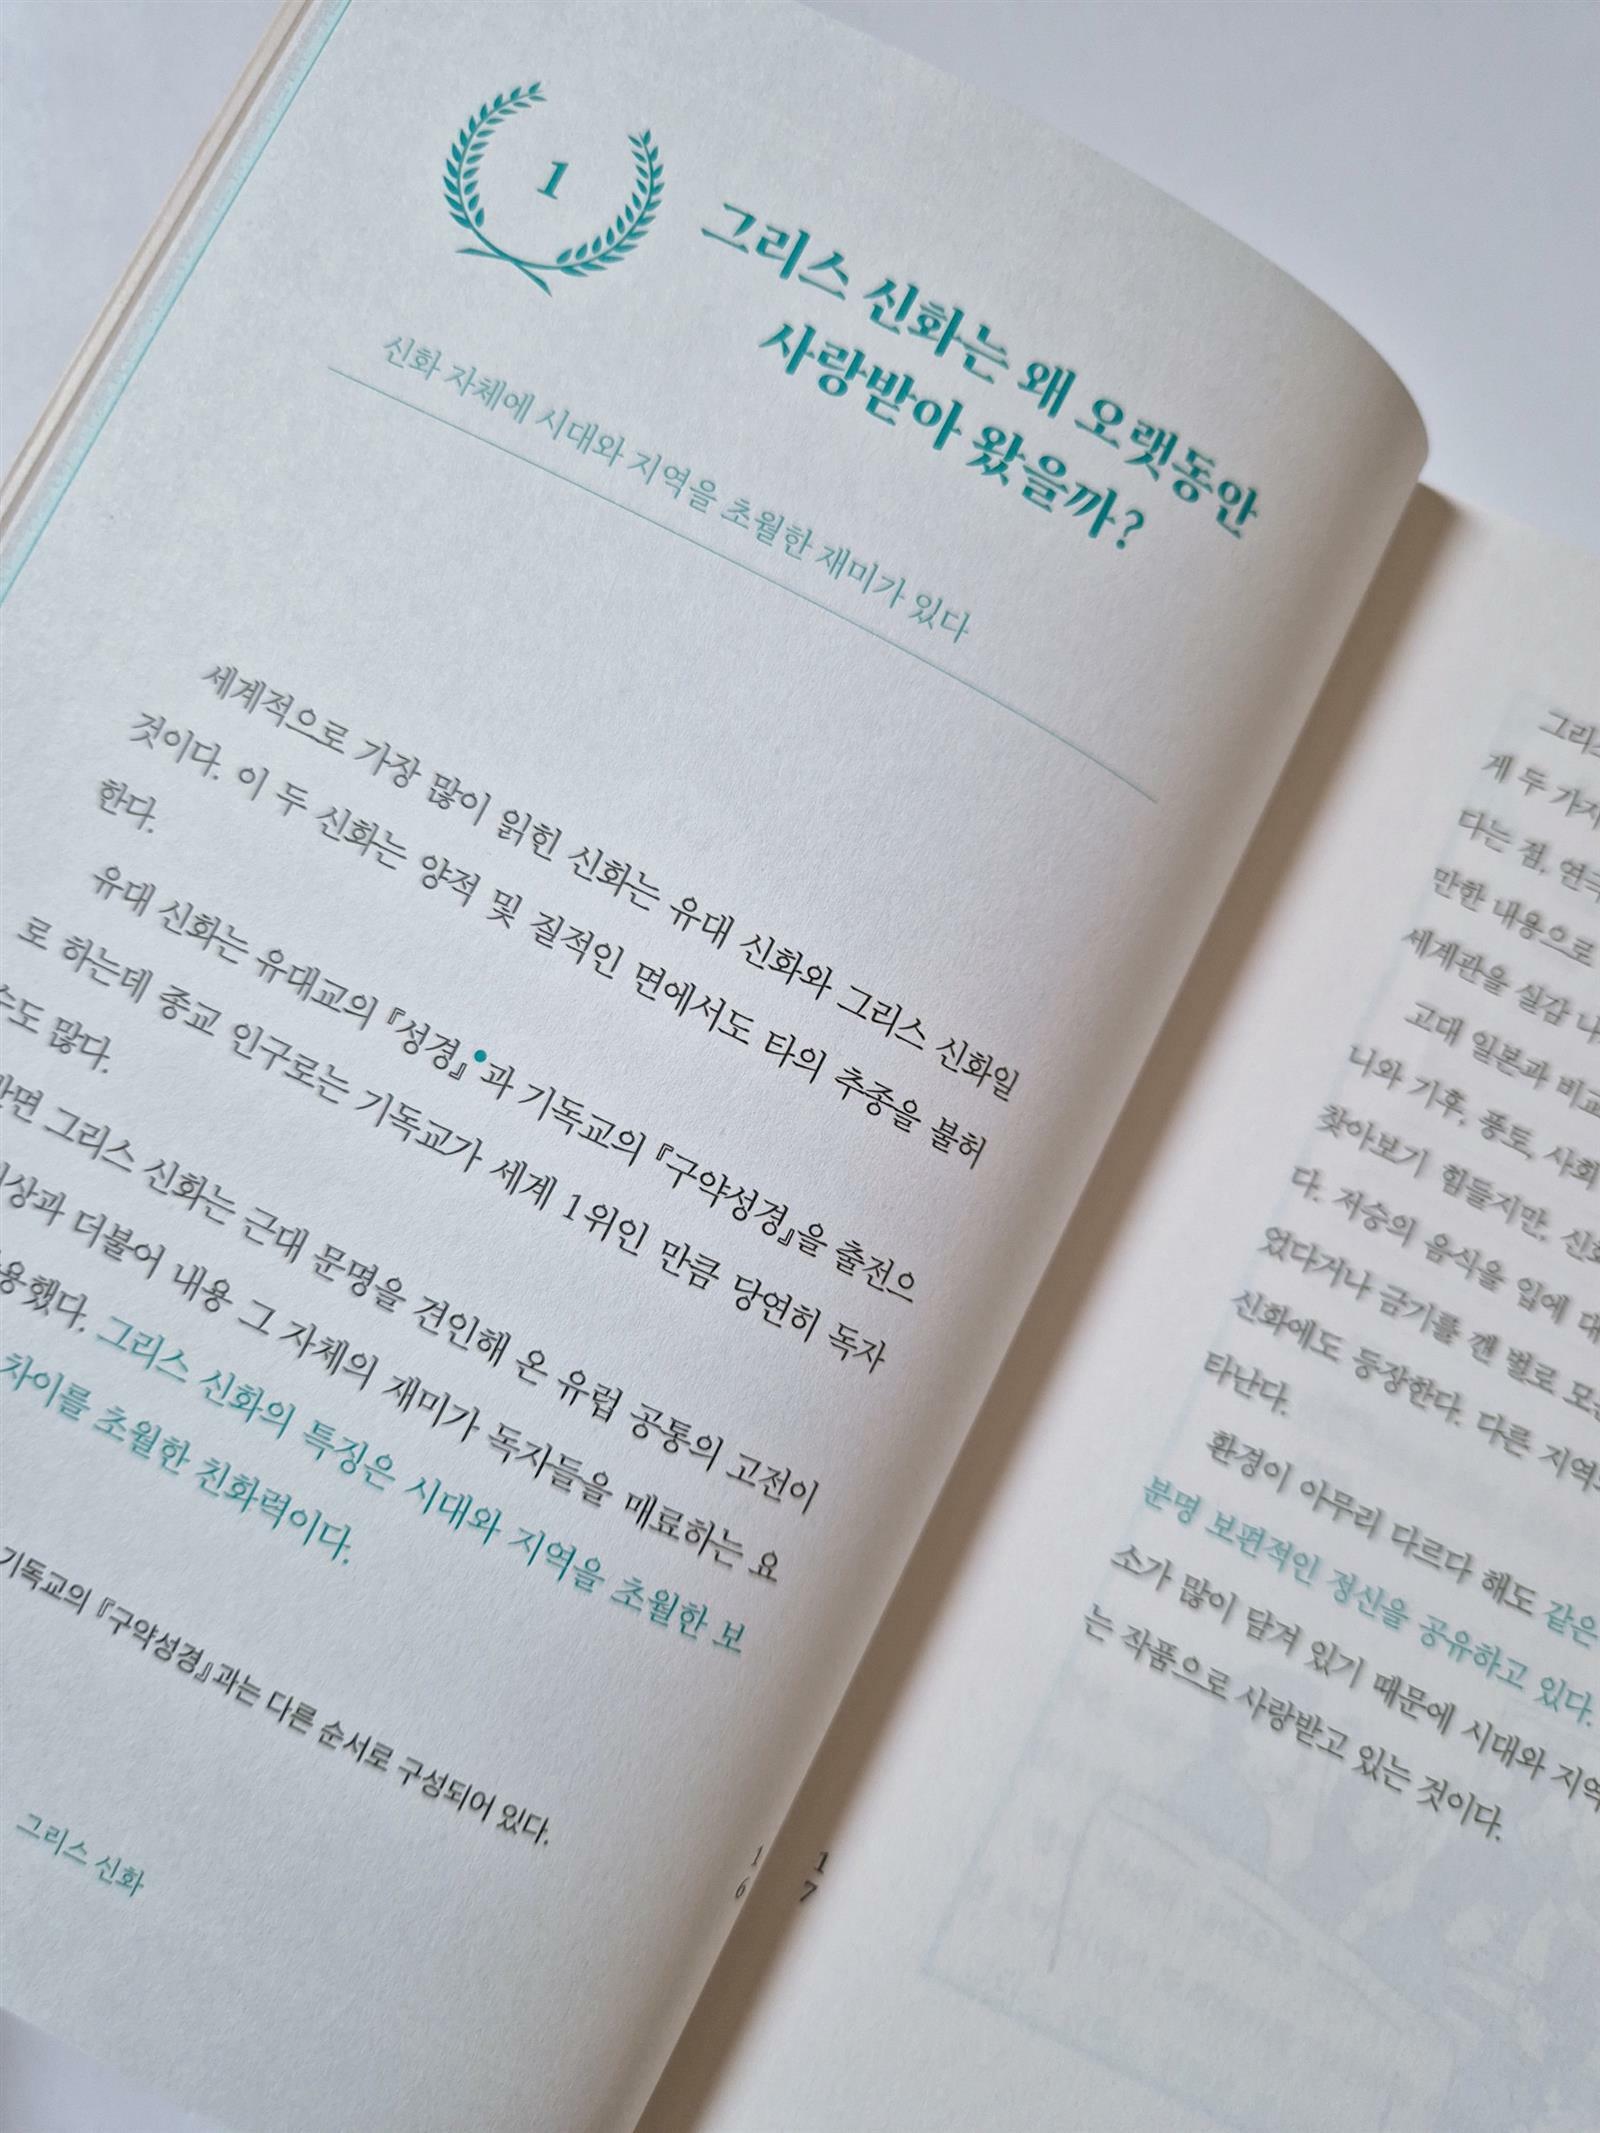 1
그리스 신화는 왜 오랫동안
사랑받아 왔을까?
신화 자체에 시대와 지역을 초월한 재미가 있다
세계적으로 가장 많이 읽힌 신화는 유대 신화와 그리스 신화일
것이다. 이 두 신화는 양적 및 질적인 면에서도 타의 추종을 불허
한다.
유대 신화는 유대교의 『성경』•과 기독교의 『구약성경』을 출전으
로 하는데 종교 인구로는 기독교가 세계 1위인 만큼 당연히 독자
수도 많다.
반면 그리스 신화는 근대 문명을 견인해 온 유럽 공통의 고전이
더불어 내용 그 자체의 재미가 독자들을 매료하는 요
그리스 신화의 특징은 시대와 지역을 초월한 보
차이를 초월한 친화력이다.
기독교의 『구약성경』과는 다른 순서로 구성되어 있다.
그리스 신화
16
17
게 두 가지
다는 점, 연극
만한 내용으로
세계관을 실감 나
고대 일본과 비교
니와 기후, 풍토, 사회
찾아보기 힘들지만, 신화
다. 저승의 음식을 입에 대
었다거나 금기를 깬 벌로 모든
신화에도 등장한다. 다른 지역
타난다.
환경이 아무리 다르다 해도 같은
분명 보편적인 정신을 공유하고 있다.
소가 많이 담겨 있기 때문에 시대와 지역
는 작품으로 사랑받고 있는 것이다.